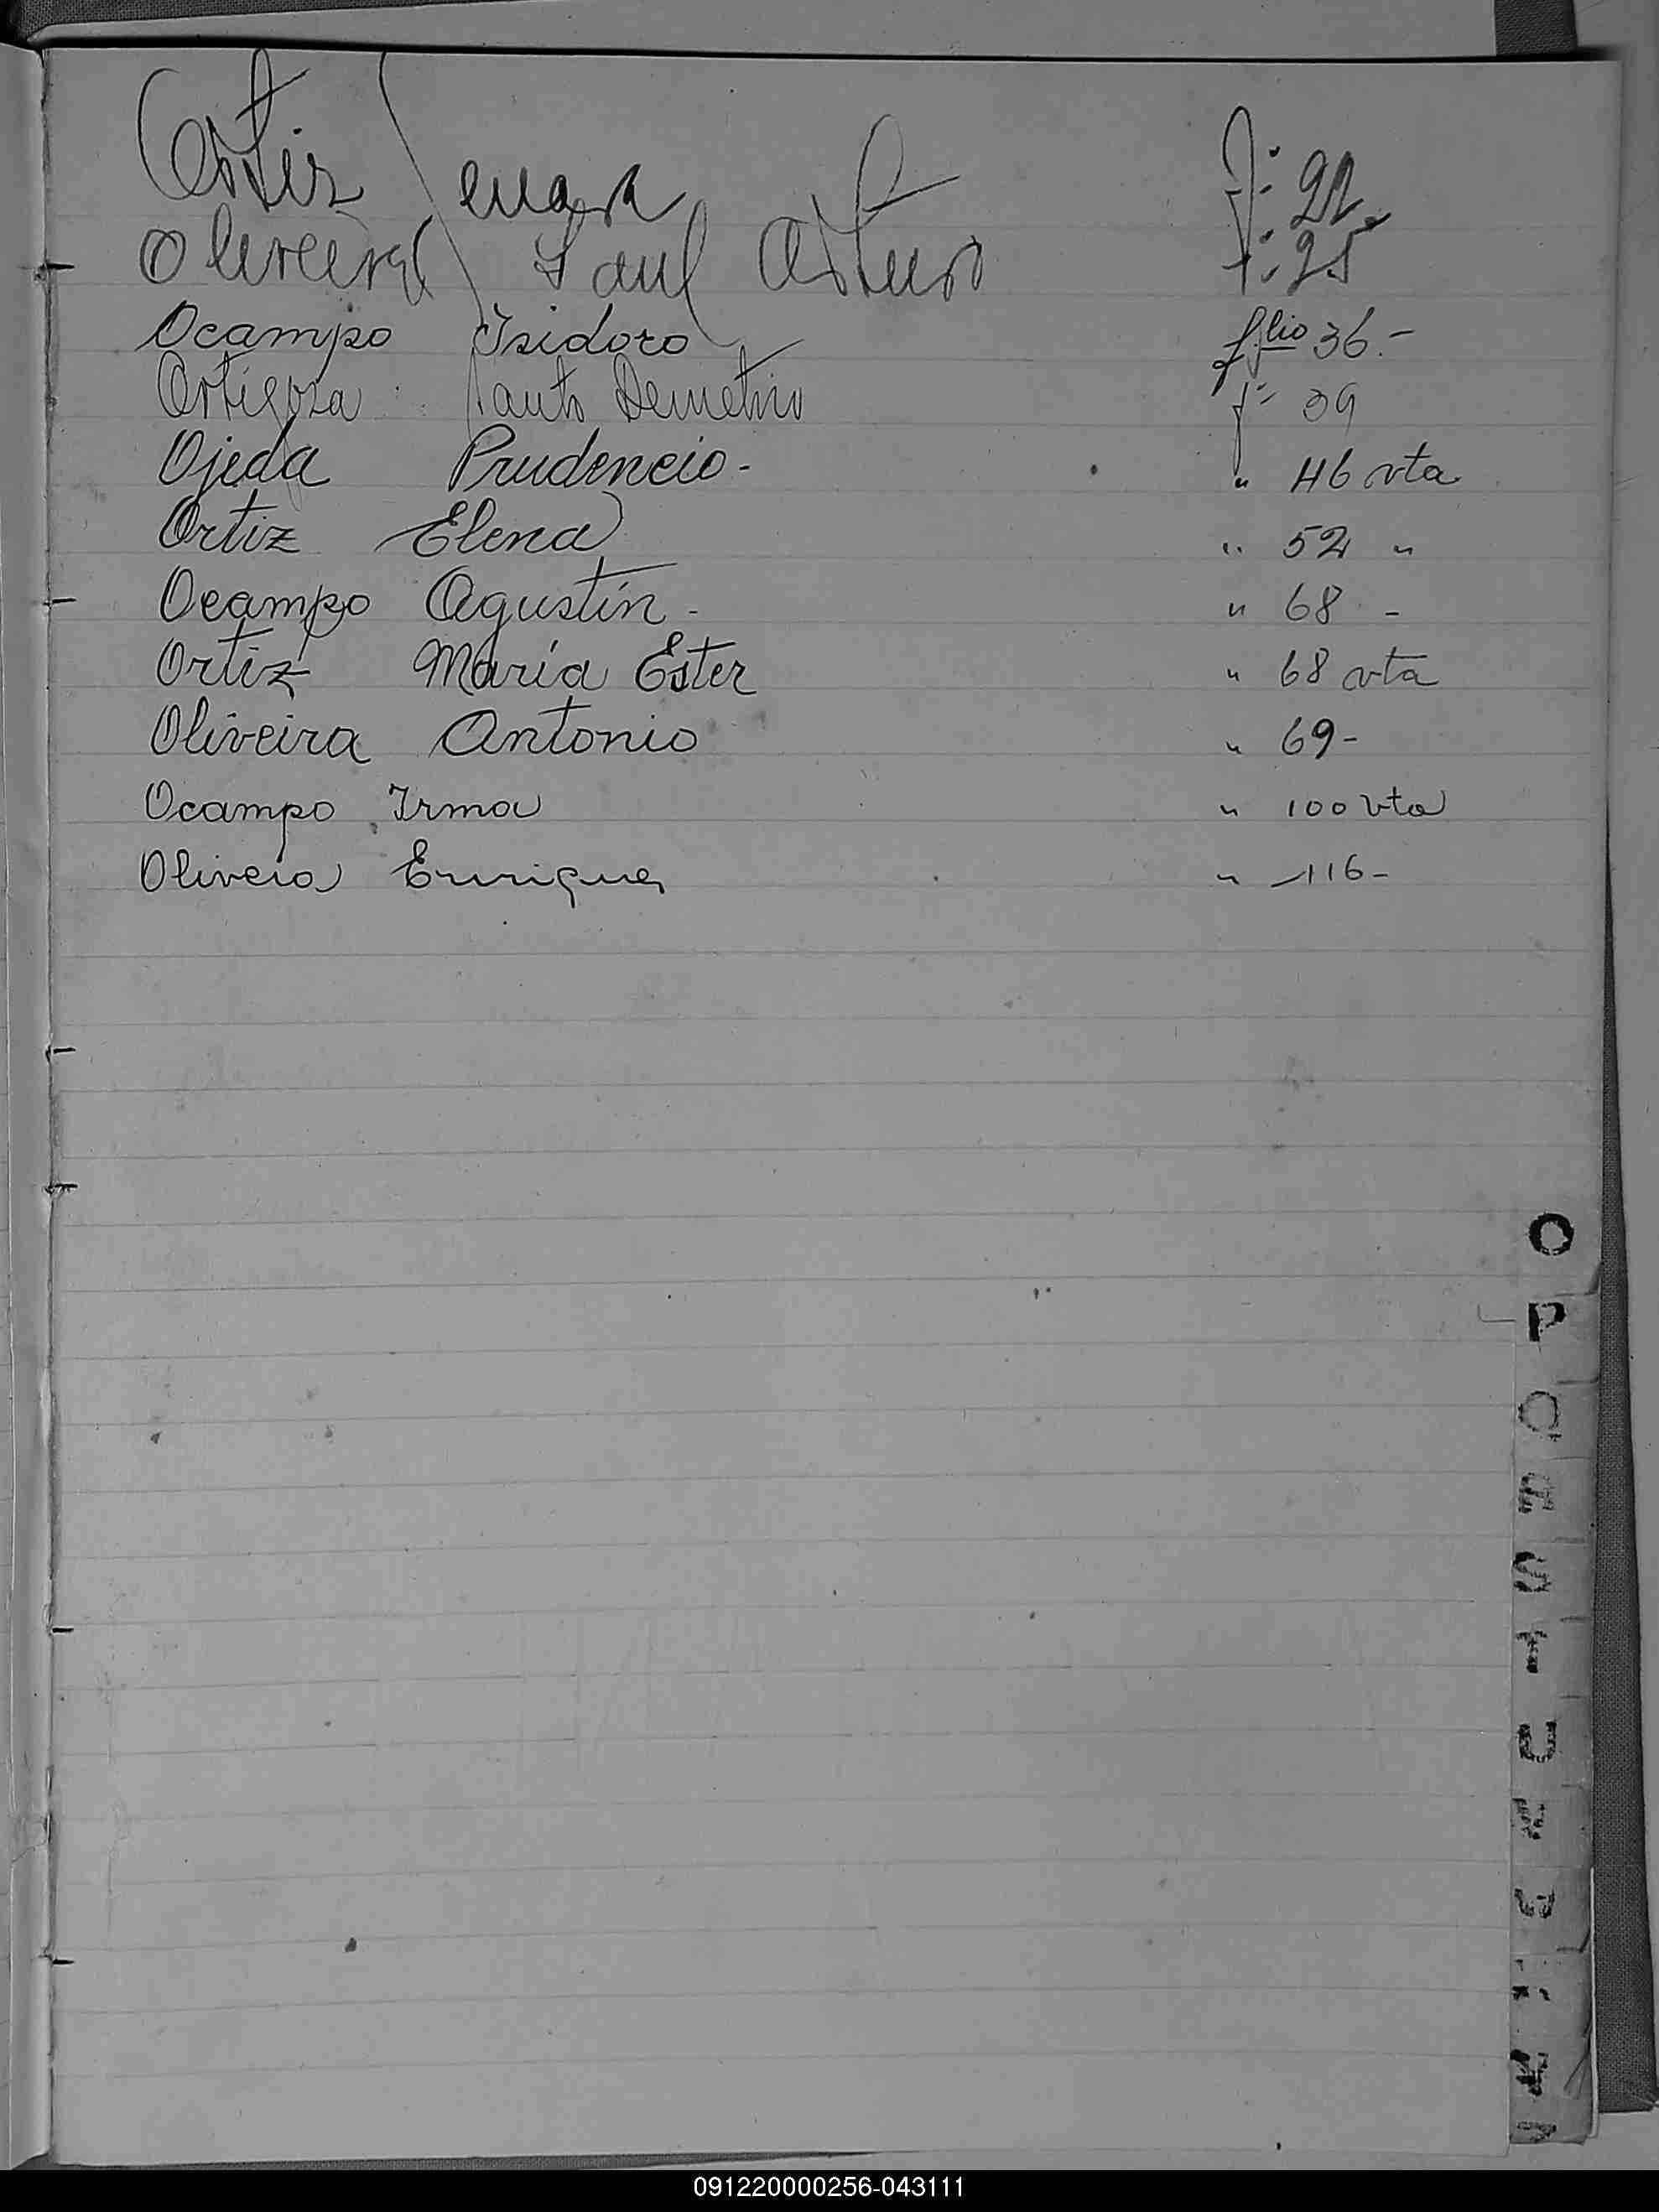 Ortiz Juan f: 22
Oliveira Saul Arturo f: 25
Ocampo Isidoro folio 36.-
Ortigoza Santo Demetrio f: 39
Ojeda Prudencio- " 46 vta
Ortiz Elena " 52 "
Ocampo Agustín - " 68 -
Ortiz María Ester " 68 vta
Oliveira Antonio " 69-
Ocampo Irma " 100 vta
Enrique " 116-
O
P
Q
S
T
U
091220000256-043111